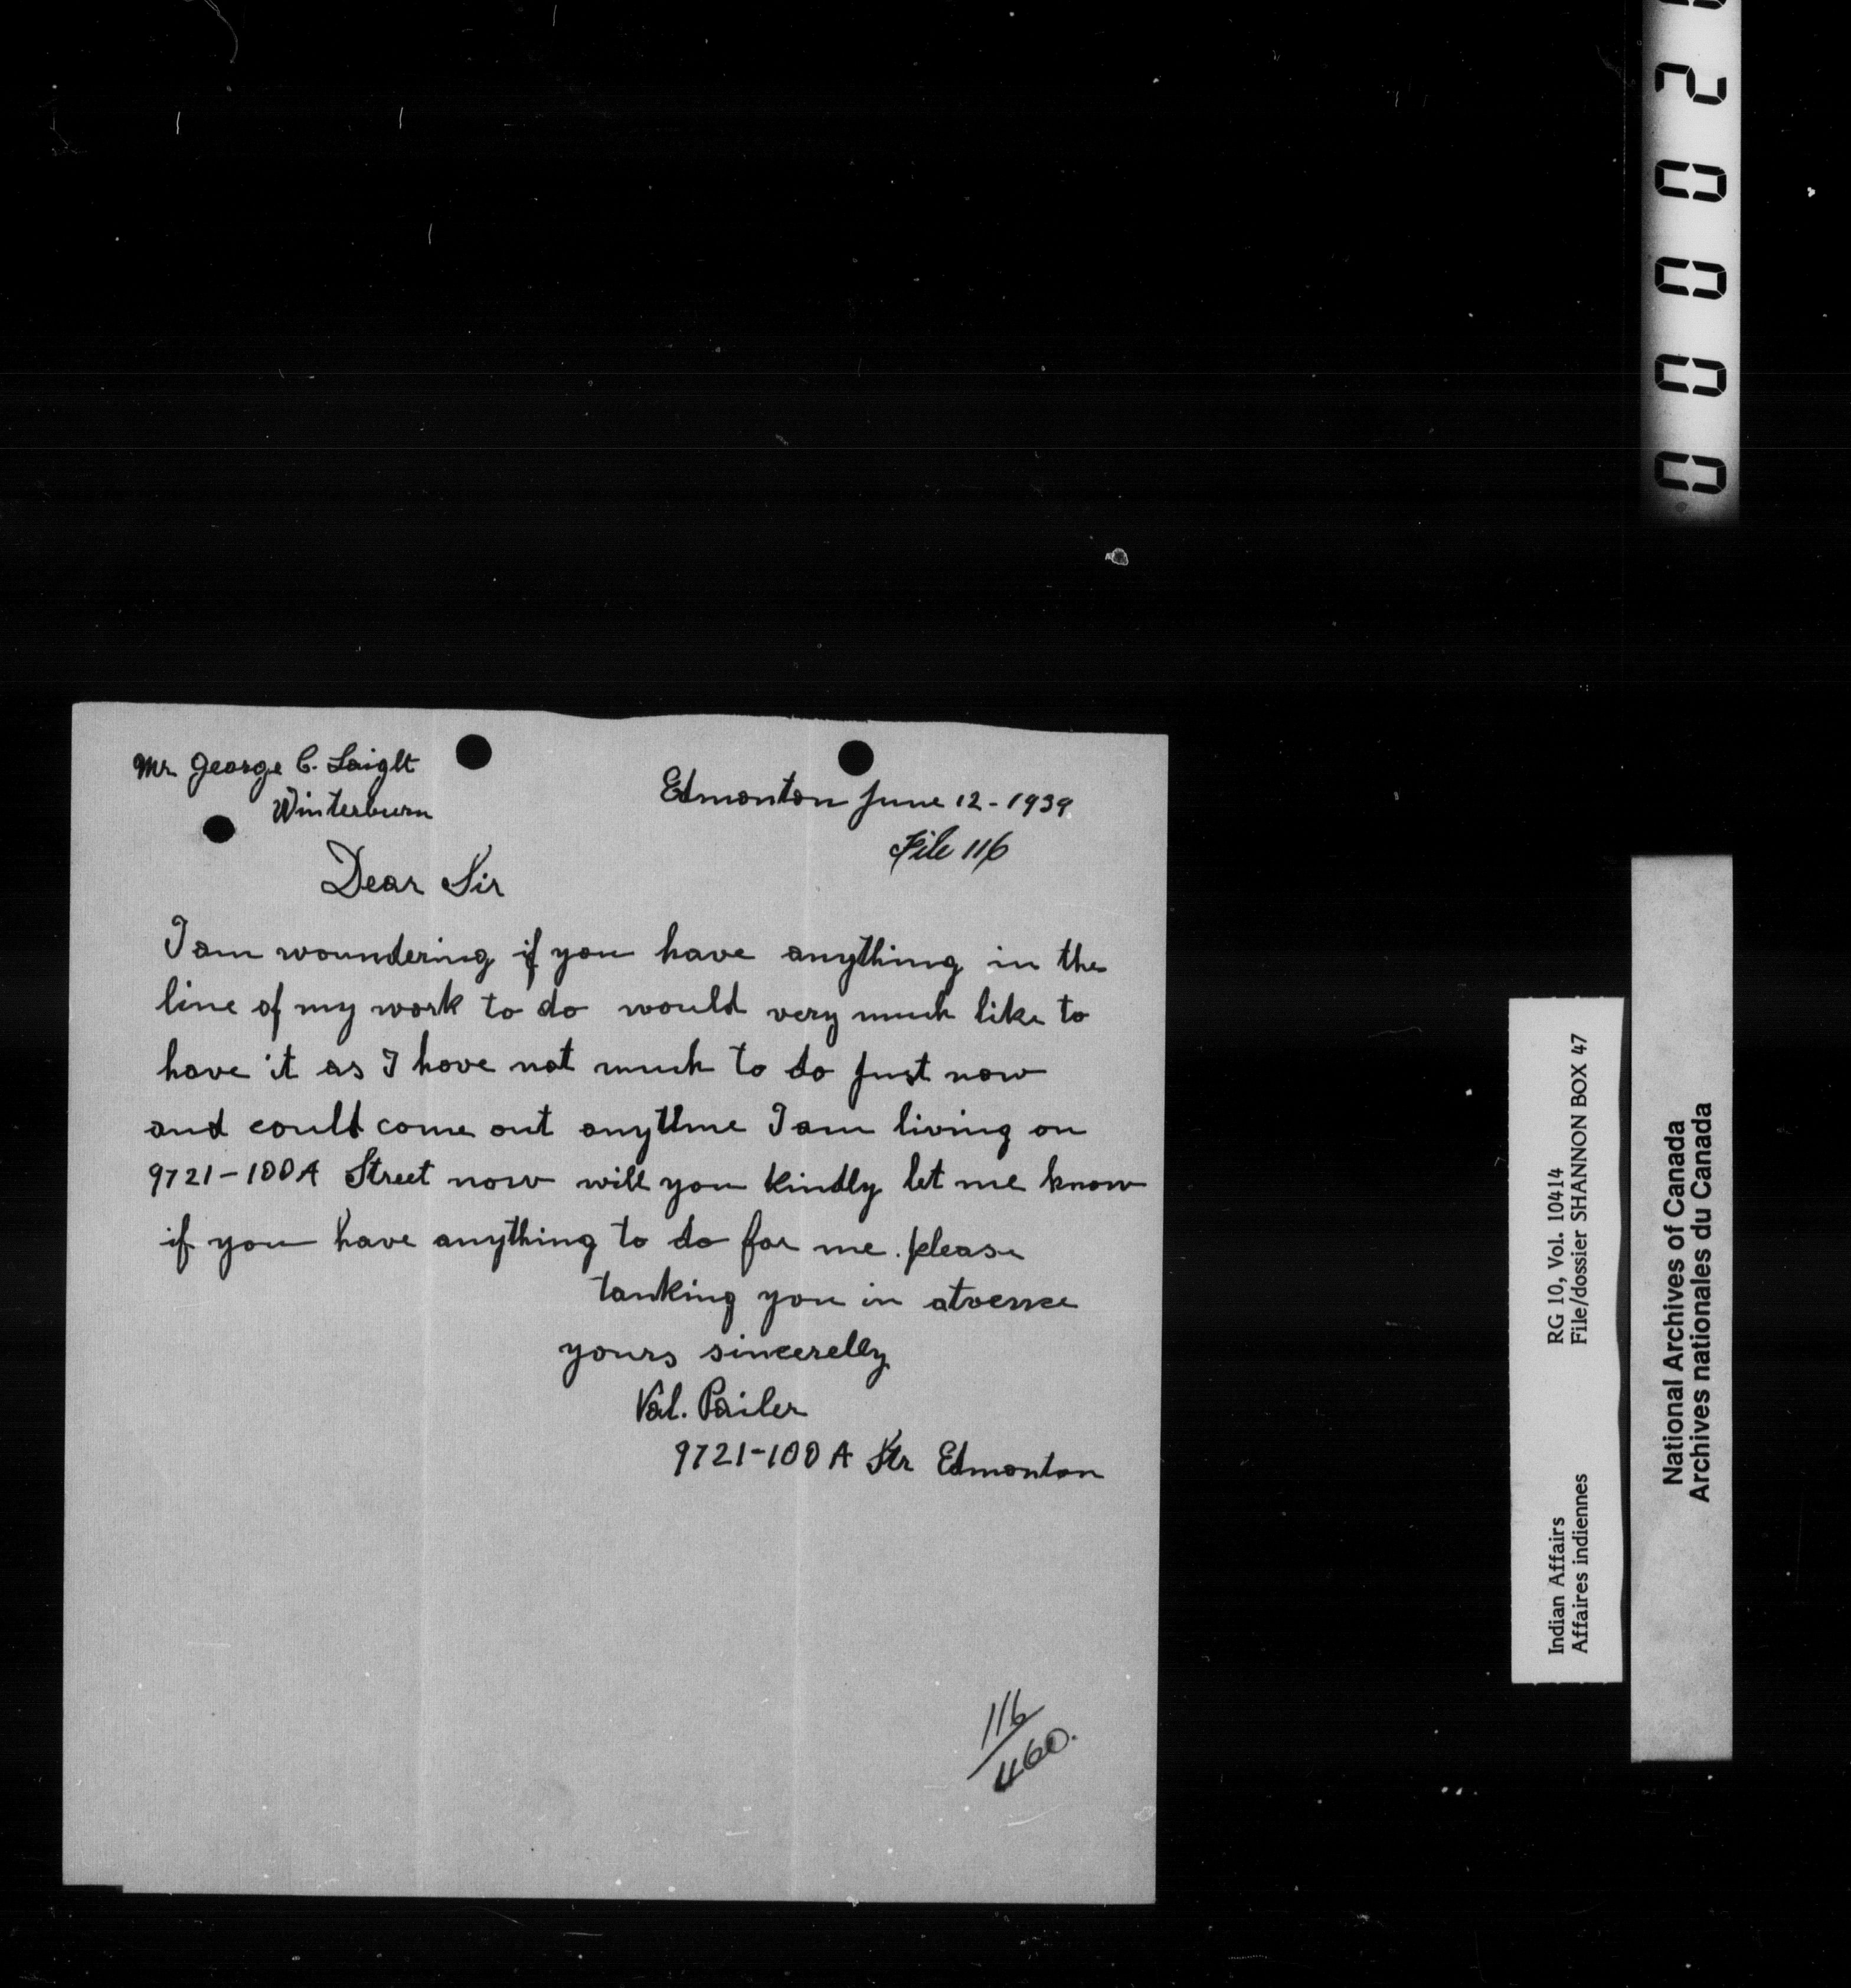 Mr George C. Laight
Winterburn
Edmonton June 12 - 1939.
File 116
Dear Sir
I am woundering if you have anything in the
line of my work to do would very much like to
have it as I have not much to do just now
and could come out anytime I am living on
9721-100A Street now will you kindly let me know
if you have anything to do for me. please
tanking you in atvence
yours sincerelly
Val. Pailer
9721-100 A Str Edmonton
116
460.
Indian Affairs RG 10, Vol. 10414
Affaires indiennes File/dossier SHANNON BOX 47
National Archives of Canada
Archives nationales du Canada